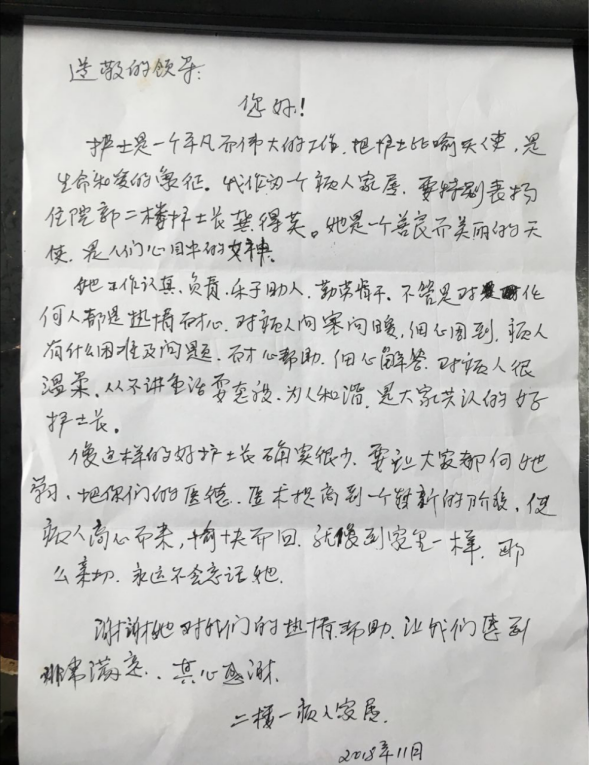 尊敬的领导:
您好!
护士是一个平凡而伟大的工作.把护士比喻天使,是
生命和爱的象征。我作为一个病人家属.要特别表扬
住院部二楼护士长龚得英。她是一个善良而美丽的天
使.是人们心目中的女神.
她工作认真、负责、乐于助人、勤劳肯干。不管是对任
何人都是热情耐心.对病人问寒问暖,细心周到.病人
有什么困难及问题.耐心帮助.细心解答.对病人很
温柔.从不讲重话耍态度.为人和谐.是大家共认的好
护士长。
像这样的好护士长确实很少.要让大家都向她
学习、把你们的医德.医术提高到一个崭新的阶段,使
病人高心而来,愉快而回.就像到家里一样.那
么亲切.永远不会忘记她.
谢谢她对我们的热情帮助.让我们感到
非常满意..真心感谢.
二楼一病人家属.
2018年11月